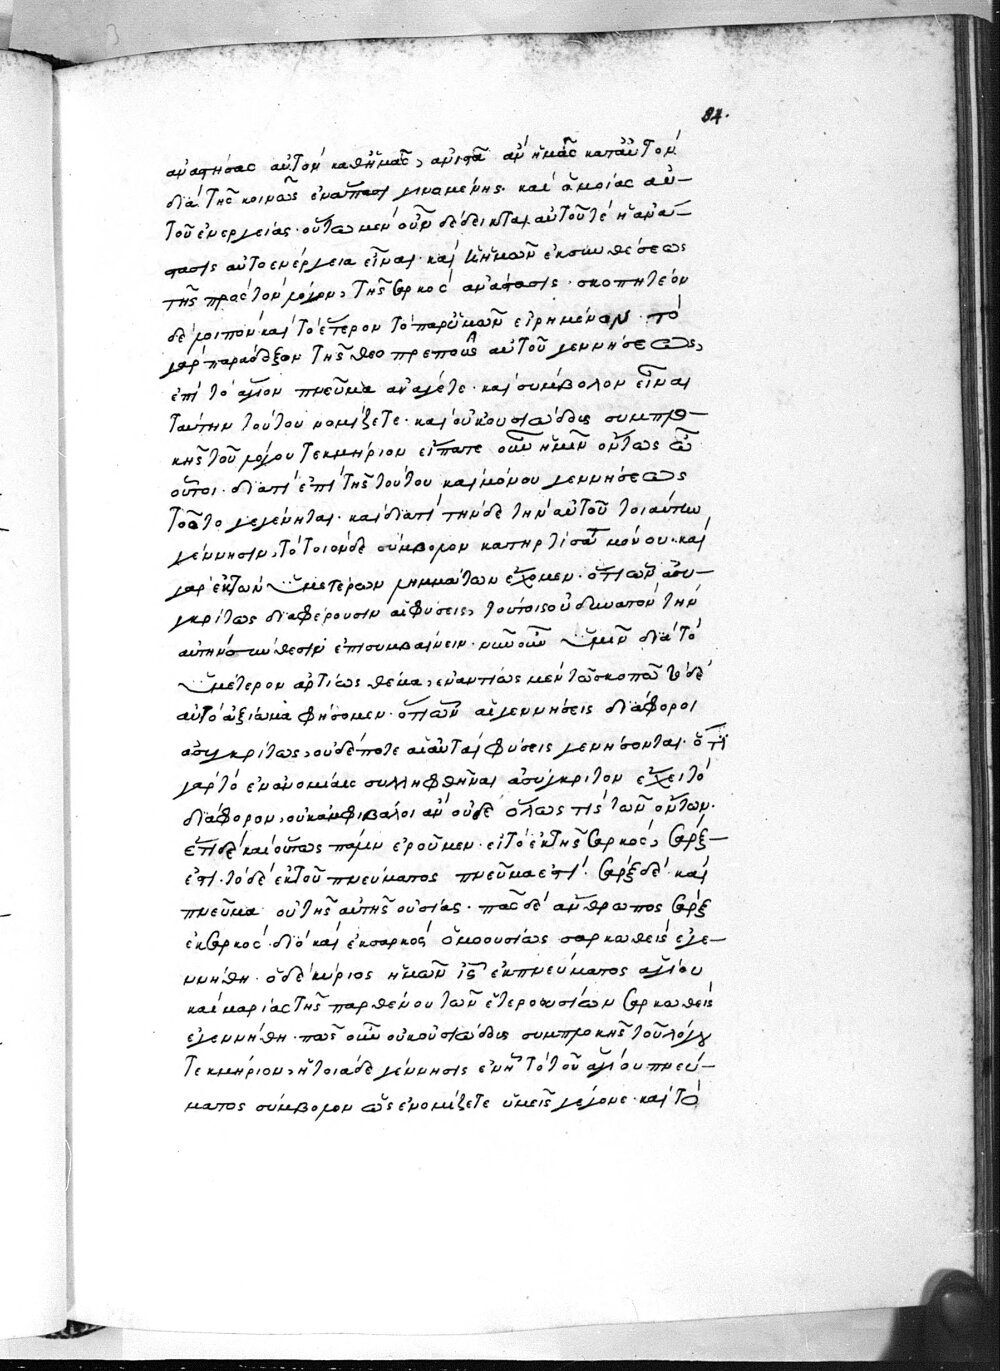 84.
ἀναστήσας αὐτὸν καθ' ἡμᾶς, ἀνιστᾶ ἂν ἡμᾶς κατ' αὐτὸν
διὰ τῆς κοινῶς ἐν ἅπασι γιναμένης καὶ ὁμοίας αὐ-
τοῦ ἐνεργείας. οὕτω μὲν οὖν δέδεικται αὐτοῦ τε ἡ ἀνά-
στασις αὐτοενέργεια εἶναι. καὶ ἡμῶν ἐκ συνθέσεως
τῆς πρὸς τὸν λόγον, τῆς σαρκὸς ἀνάστασις. σκοπητέον
δὲ λοιπὸν καὶ τὸ ἕτερον τὸ παρ' ὑμῶν εἰρημένον. τὸ
γὰρ παράδοξον τῆς θεοπρεποῦς αὐτοῦ γεννήσεως,
ἐπὶ τὸ ἅγιον πνεῦμα ἀνάγετε. καὶ σύμβολον εἶναι
ταύτην τούτου νομίζετε. καὶ οὐκ οὐσιώδους συμπλο-
κῆς τοῦ λόγου τεκμήριον εἴπατε οὖν ἡμῖν οὕτως ὦ
οὗτοι. διατί ἐπὶ τῆς τούτου καὶ μόνου γεννήσεως
τοῦτο γεγένηται. καὶ διατί τήνδε τὴν αὐτοῦ τοιαύτην
γέννησιν, τὸ τοιόνδε σύμβολον κατηρτίσατο μόνου. καὶ
γὰρ ἐκ τῶν ὑμετέρων λημμάτων ἔχομεν. ὅτι ὧν ἀσυ-
γκρίτως διαφέρουσιν αἱ φύσεις, τούτοις οὐ δυνατὸν τὴν
αὐτὴν σύνθεσιν ἐπισυμβαίνειν. νῦν οὖν ὑμῖν διὰ τὸ
ὑμέτερον ἀρτίως θέμα, ἐναντίως μὲν τῶ σκοπῶ τόδε
αὐτὸ ἀξίωμα θήσομεν. ὅτι ὧν αἱ γεννήσεις διάφοροι
ἀσυγκρίτως, οὐδέποτε αἱ αὐταὶ φύσεις γεννήσονται. ὅτι
γὰρ τὸ ἐν ἀνομίαις συλληφθῆναι ἀσύγκριτον ἔχει τὸ
διάφορον, οὐκ ἀμφιβάλοι ἂν οὐδὲ ὅλως τίς τῶν ὄντων.
ἔτι δὲ καὶ οὕτως πάλιν ἐροῦμεν. εἰ τὸ ἐκ τῆς σαρκός, σάρξ
ἐστι. τὸ δὲ ἐκ τοῦ πνεύματος πνεῦμα ἐστί. σὰρξ δὲ καὶ
πνεῦμα οὐ τῆς αὐτῆς οὐσίας. πᾶς δὲ ἄνθρωπος σὰρξ
ἐκ σαρκός. διὸ καὶ ἐκ σαρκὸς ὁμοουσίως σαρκωθεὶς ἐγε-
ννήθη. ὁ δὲ κύριος ἡμῶν ις ἐκ πνεύματος ἁγίου
καὶ μαρίας τῆς παρθένου τῶν ἑτεροουσίων σαρκωθεὶς
ἐγεννήθη. πῶς οὖν οὐκ οὐσιώδους συμπλοκῆς τοῦ λόγου
τεκμήριον, ἡ τοιάδε γέννησις ἐν ἧ τὸ τοῦ ἁγίου πνεύ-
ματος σύμβολον ὡς ἐνομίζετε ὑμεῖς γέγονε. καὶ τὸ